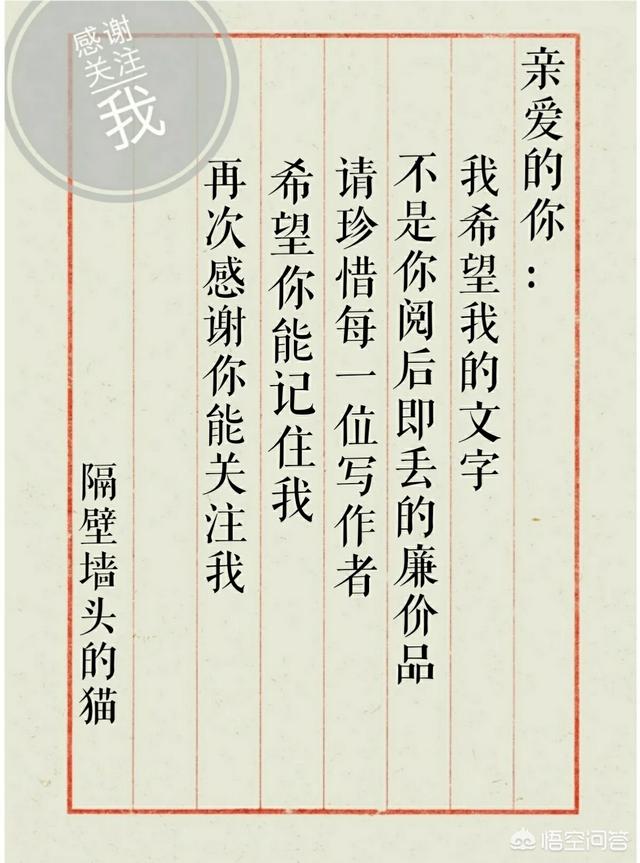 亲爱的你：
我希望我的文字
不是你阅后即丢的廉价品
请珍惜每一位写作者
希望你能记住我
再次感谢你能关注我
隔壁墙头的猫
感谢
关注
我
悟空问答